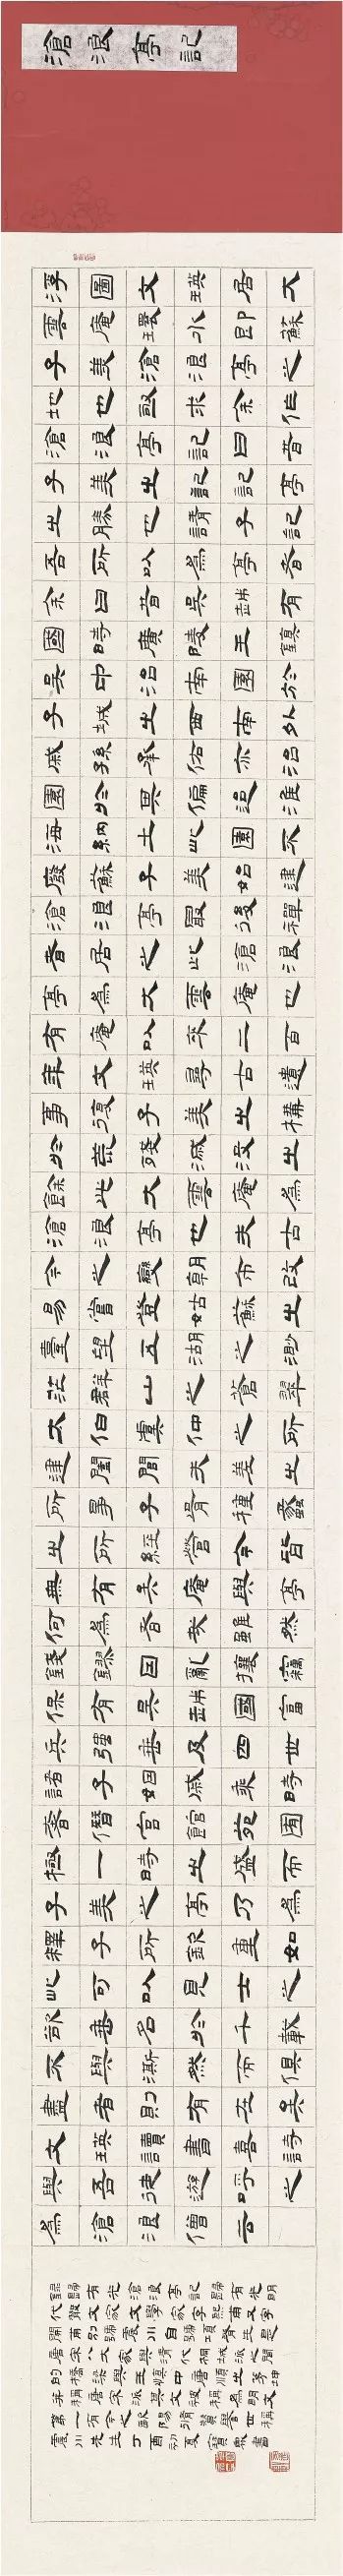 滄浪亭記
浮圖文瑛居大
雲庵環水即蘇
子美滄浪亭之
地也亟求余作
滄浪亭記曰昔
子美之記記亭
之勝也請子記
吾所以為亭者
余曰昔吳越有
國時廣陵王鎮
吳中治南園於
子城之西南外
戚孫承佑亦治
園於其偏迨淮
海納土此園不
廢蘇子美始建
滄浪亭最後禪
者居之此滄浪
亭為大雲庵也
有庵以來二百
年文瑛尋古遺
事復子美之構
於荒殘滅沒之
餘此大雲庵為
滄浪亭也夫古
今之變朝市改
易嘗登姑蘇之
臺望五湖之渺
茫群山之蒼翠
太伯虞仲之所
建闔閭夫差之
所爭子胥種蠡
之所經營今皆
無有矣庵與亭
何為者哉雖然
錢鏐因亂攘竊
保有吳越國富
兵強垂及四世
諸子姻戚乘時
奢僭宮館苑囿
極一時之盛而
子美之亭乃為
釋子所欽重如
此可以見士之
欲垂名於千載
不與澌然而俱
盡者則有在矣
文瑛讀書喜詩
與吾徒遊呼之
為滄浪僧云